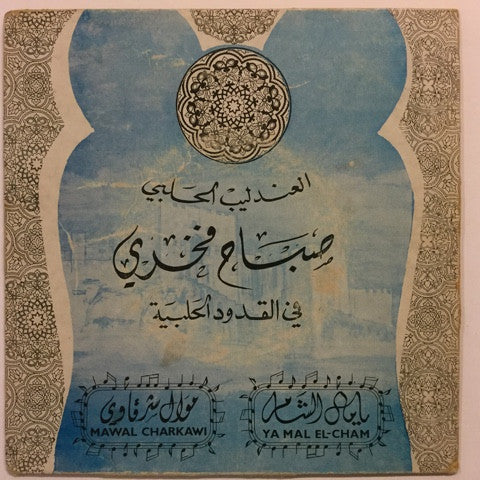 العندليب الحلبي
صباح فخري
في القدود الحلبية
يا مال الشام
YA MAL EL-CHAM
موال شرقاوي
MAWAL CHARKAWI